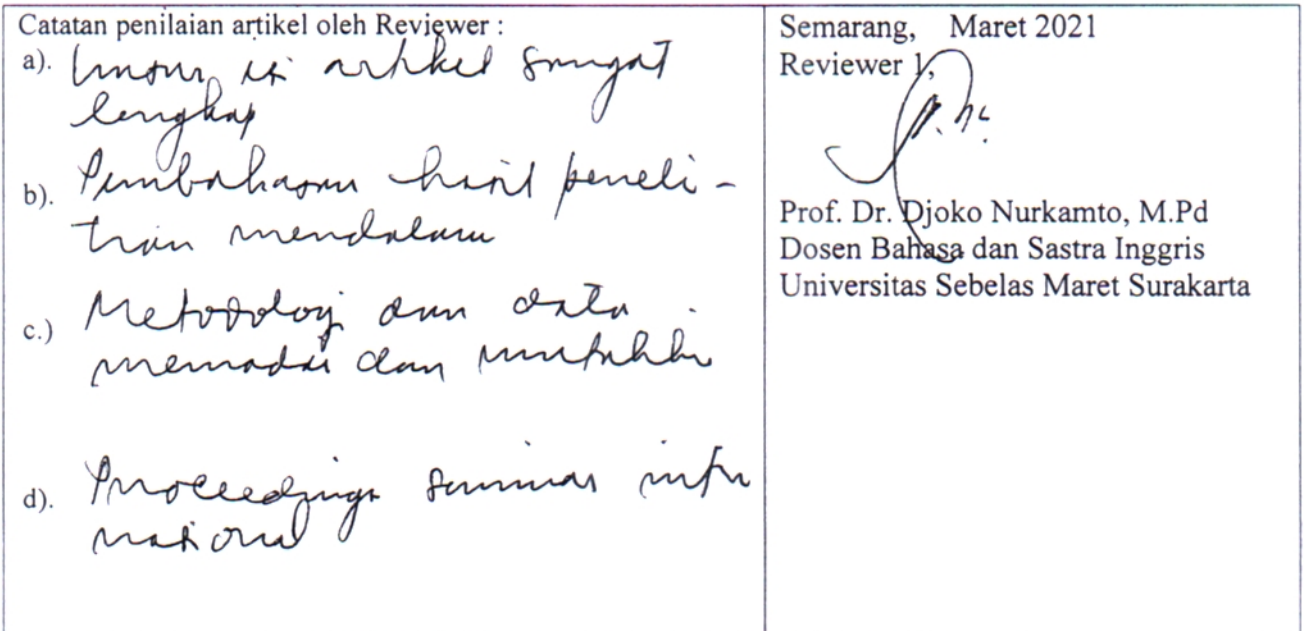 Catatan penilaian artikel oleh Reviewer :
a). Unsur isi artikel sangat
lengkap
b). Pembahasan hasil peneli-
tian mendalam
c.) Metodologi dan data
memadai dan mutakhir
d). Proceedings seminar inter
nasional
Semarang, Maret 2021
Reviewer 1,
Prof. Dr. Djoko Nurkamto, M.Pd
Dosen Bahasa dan Sastra Inggris
Universitas Sebelas Maret Surakarta